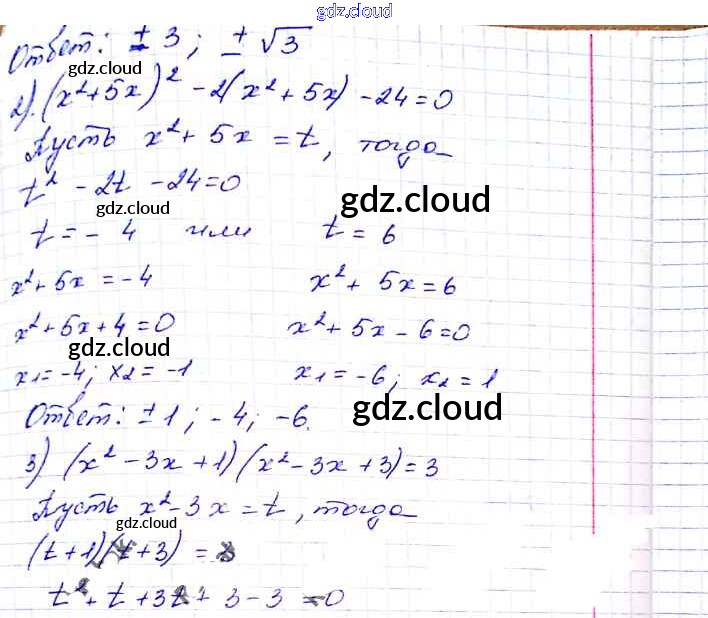 gdz.cloud
Ответ: ± 3 ; ± √3
gdz.cloud
2). (x²+5x)² - 2(x²+5x) - 24=0
Пусть x²+5x =t, тогда
t² - 2t - 24=0
gdz.cloud
gdz.cloud
t = - 4 или t = 6
x²+5x = -4 x²+ 5x=6
x²+5x+4=0 x²+5x-6=0
gdz.cloud
x1=-4; x2= -1 x1=-6; x2=1
Ответ: ±1; -4; -6.
gdz.cloud
3) (x²-3x+1)(x²-3x+3)=3
Пусть x²-3x =t, тогда
gdz.cloud
(t+1)(t+3) =3
t²+ t+3t+ 3-3 =0